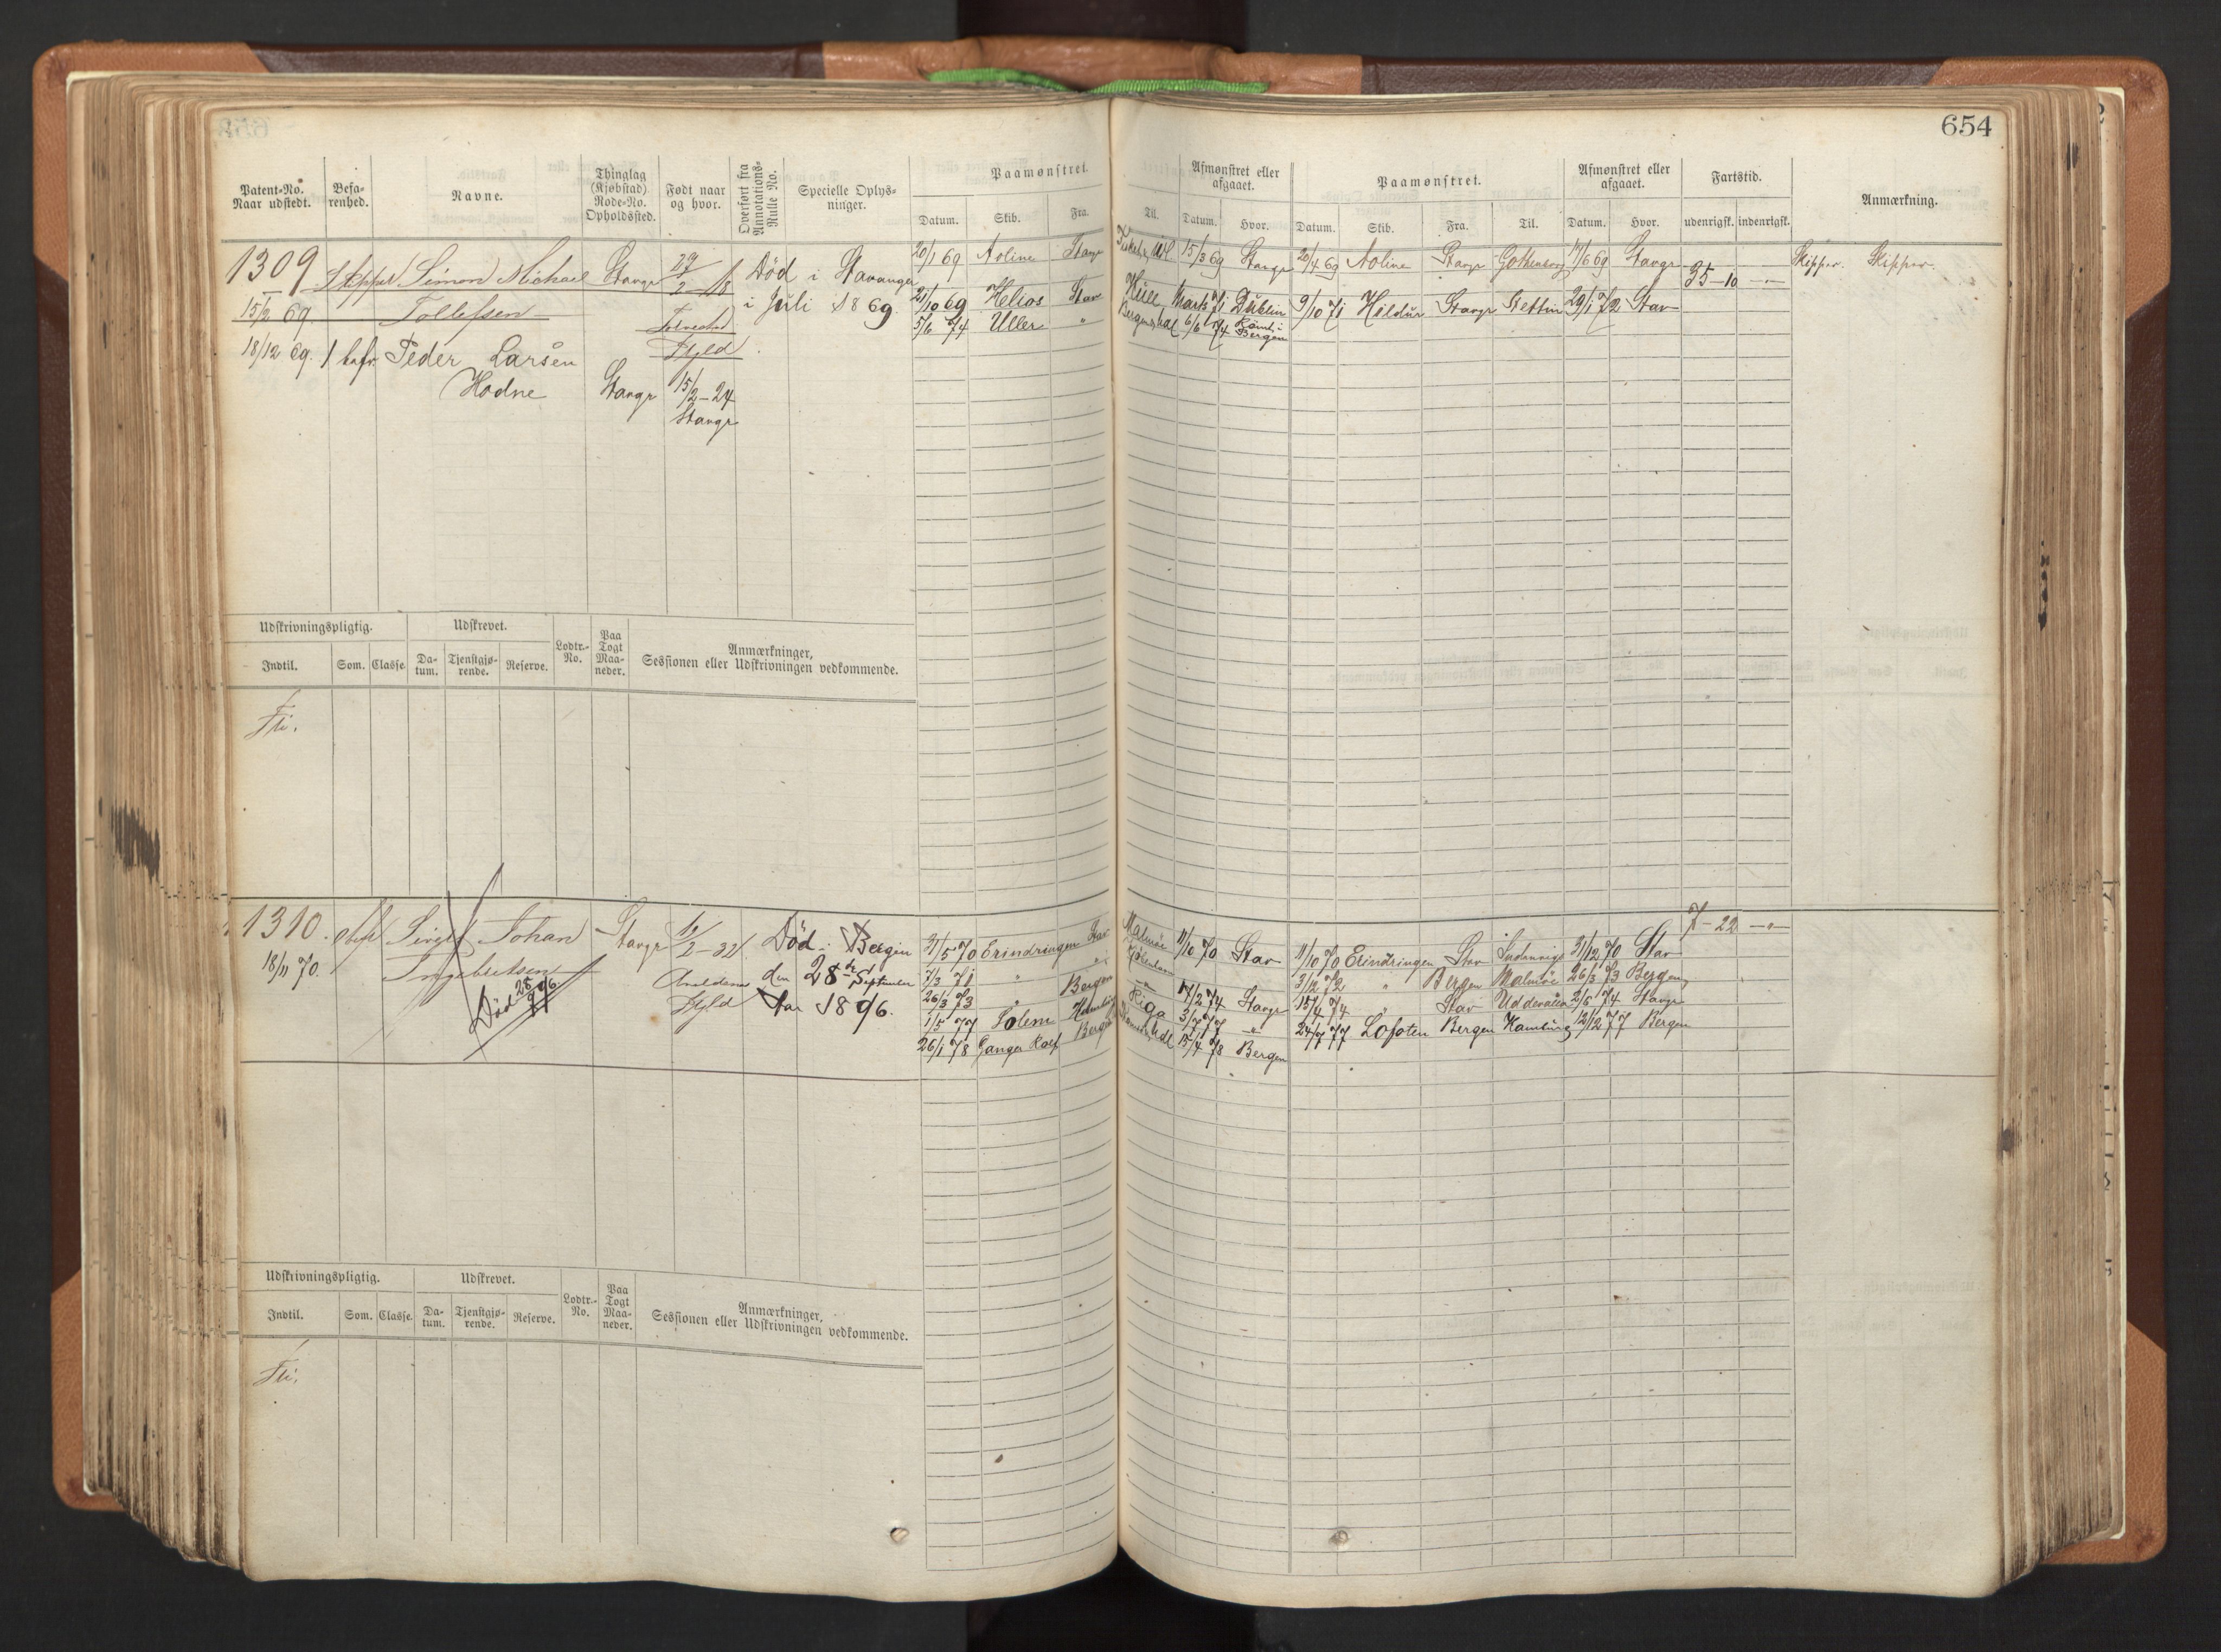 654
Patent-No. Naar udstedt.
Befa-renhed.
Navne.
Thinglag (Kjøbstad) Rode-No. Opholdssted.
Født naar og hvor.
Overført fra Annotations-Rulle No.
Specielle Oplys-ninger.
Paamønstret.
Datum. Skib. Fra. Til.
Afmønstret eller afgaaet.
Datum. Hvor.
Paamønstret.
Datum. Skib. Fra. Til.
Afmønstret eller afgaaet.
Datum. Hvor.
Fartstid.
udenrigsk. indenrigsk.
Anmærkning.
1309 Simon Michael Stavgr 27/2-18 Død i Stavanger
15/2 69 Tollefsen i Juli 1869.
Fyld
18/12 69. 1 bef. Peder Larsen
Hodne Stavgr 15/2-24
Stavgr
20/1 69 Aoline Stavgr 15/3 69 Stavgr 20/4 69 Aoline Stavgr Gothenborg 17/6 69 Stavgr
35-10 Skipper. Skipper.
21/10 69 Helios Stav Hull Marts 71 Dublin 9/10 71 Hildur Stavgr Stettin 29/1 72 Stav
5/6 74 Uller " 6/6 74 Bergen
Udskrivningspligtig. Udskrevet. Lodtr.-No. Paa Togt Maa-neder. Anmærkninger, Sessionen eller Udskrivningen vedkommende.
Indtil. Som. Classe. Da-tum. Tjenstgjø-rende. Reserve.
Fri.
1310. Johan Stavgr 2-32 Død i Bergen
18/11 70. Ingebretsen den 28de September
Død 28/9 96 Fyld 1896.
7-22
5 70 Erindringen Stav Malmöe 11/10 70 Stav 11/10 70 Erindringen Stav 12 70 Stav
7/3 71 " " 3/12 72 " Bergen Malmöe 26/3 73 Bergen
26/3 73 " Bergen " 17/2 74 Stavgr 15/4 74 " Stav Uddevalla 2/5 74 Stavgr
1/5 77 Solem Riga 3/7 77 " 24/7 77 Lofoten Bergen Hamburg 12/12 77 Bergen
26/1 78 Ganger Rolf Bergen 15/4 78 Bergen
Udskrivningspligtig. Udskrevet. Lodtr.-No. Paa Togt Maa-neder. Anmærkninger, Sessionen eller Udskrivningen vedkommende.
Indtil. Som. Classe. Da-tum. Tjenstgjø-rende. Reserve.
Fri.